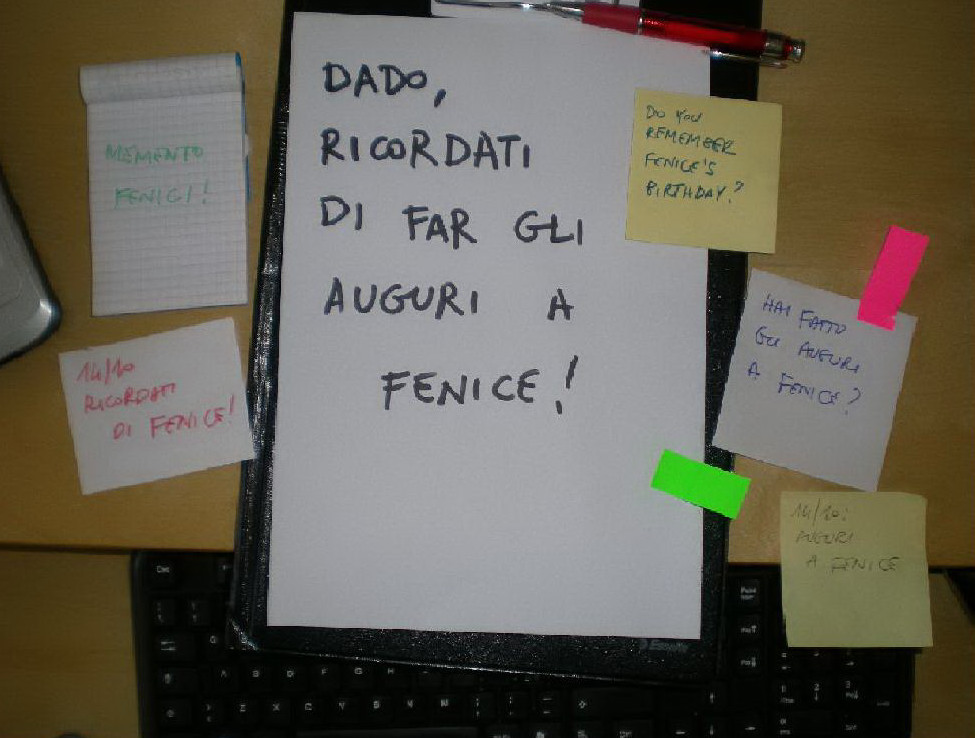 DADO,
RICORDATI
DI FAR GLI
AUGURI A
FENICE!
MEMENTO
FENICI!
14/10
RICORDATI
DI FENICE!
DO YOU
REMEMBER
FENICE'S
BIRTHDAY?
HAI FATTO
GLI AUGURI
A FENICE?
14/10:
AUGURI
A FENICE